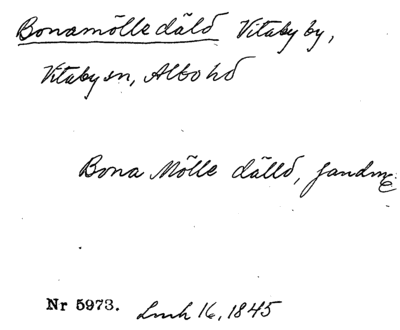 Bonamölle däld Vitaby by,
Vitaby sn, Albo hd
Bona Mölle dälld, sandm
Nr 5973. Lmh 16, 1845